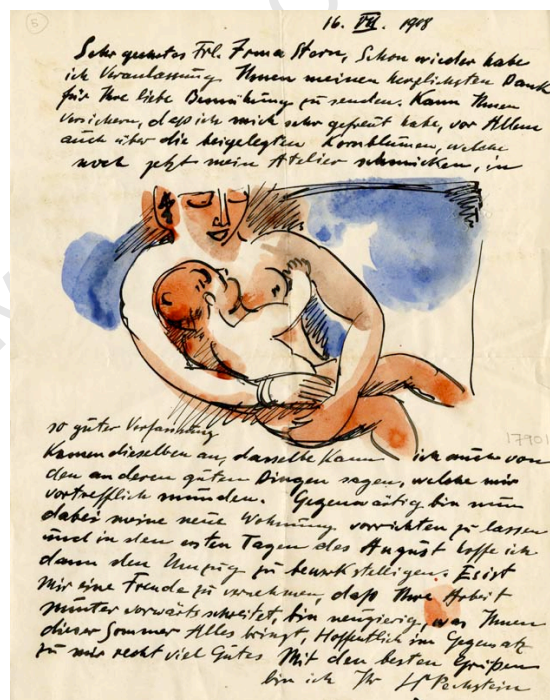 5
16. VII. 1918
Sehr geehrtes Frl. Irma Stern, Schon wieder habe
ich Veranlassung Ihnen meinen herzlichsten Dank
für Ihre liebe Bemühung zu senden. Kann Ihnen
versichern, daß ich mich sehr gefreut habe, vor Allem
auch über die beigelegten Kornblumen, welche
noch jetzt mein Atelier schmücken, in
so guter Verfassung
Kamen dieselben an, dasselbe Kann ich auch von
den anderen guten Dingen sagen, welche mir
vortrefflich munden. Gegenwärtig bin nun
dabei meine neue Wohnung vorrichten zu lassen
und in den ersten Tagen des August hoffe ich
dann den Umzug zu bewerkstelligen. Es ist
mir eine Freude zu vernehmen, daß Ihre Arbeit
munter vorwärts schreitet, bin neugierig, was Ihnen
dieser Sommer Alles bringt, Hoffentlich im Gegensatz
zu mir recht viel Gutes. Mit den besten Grüßen
bin ich Ihr HMPechstein
17901